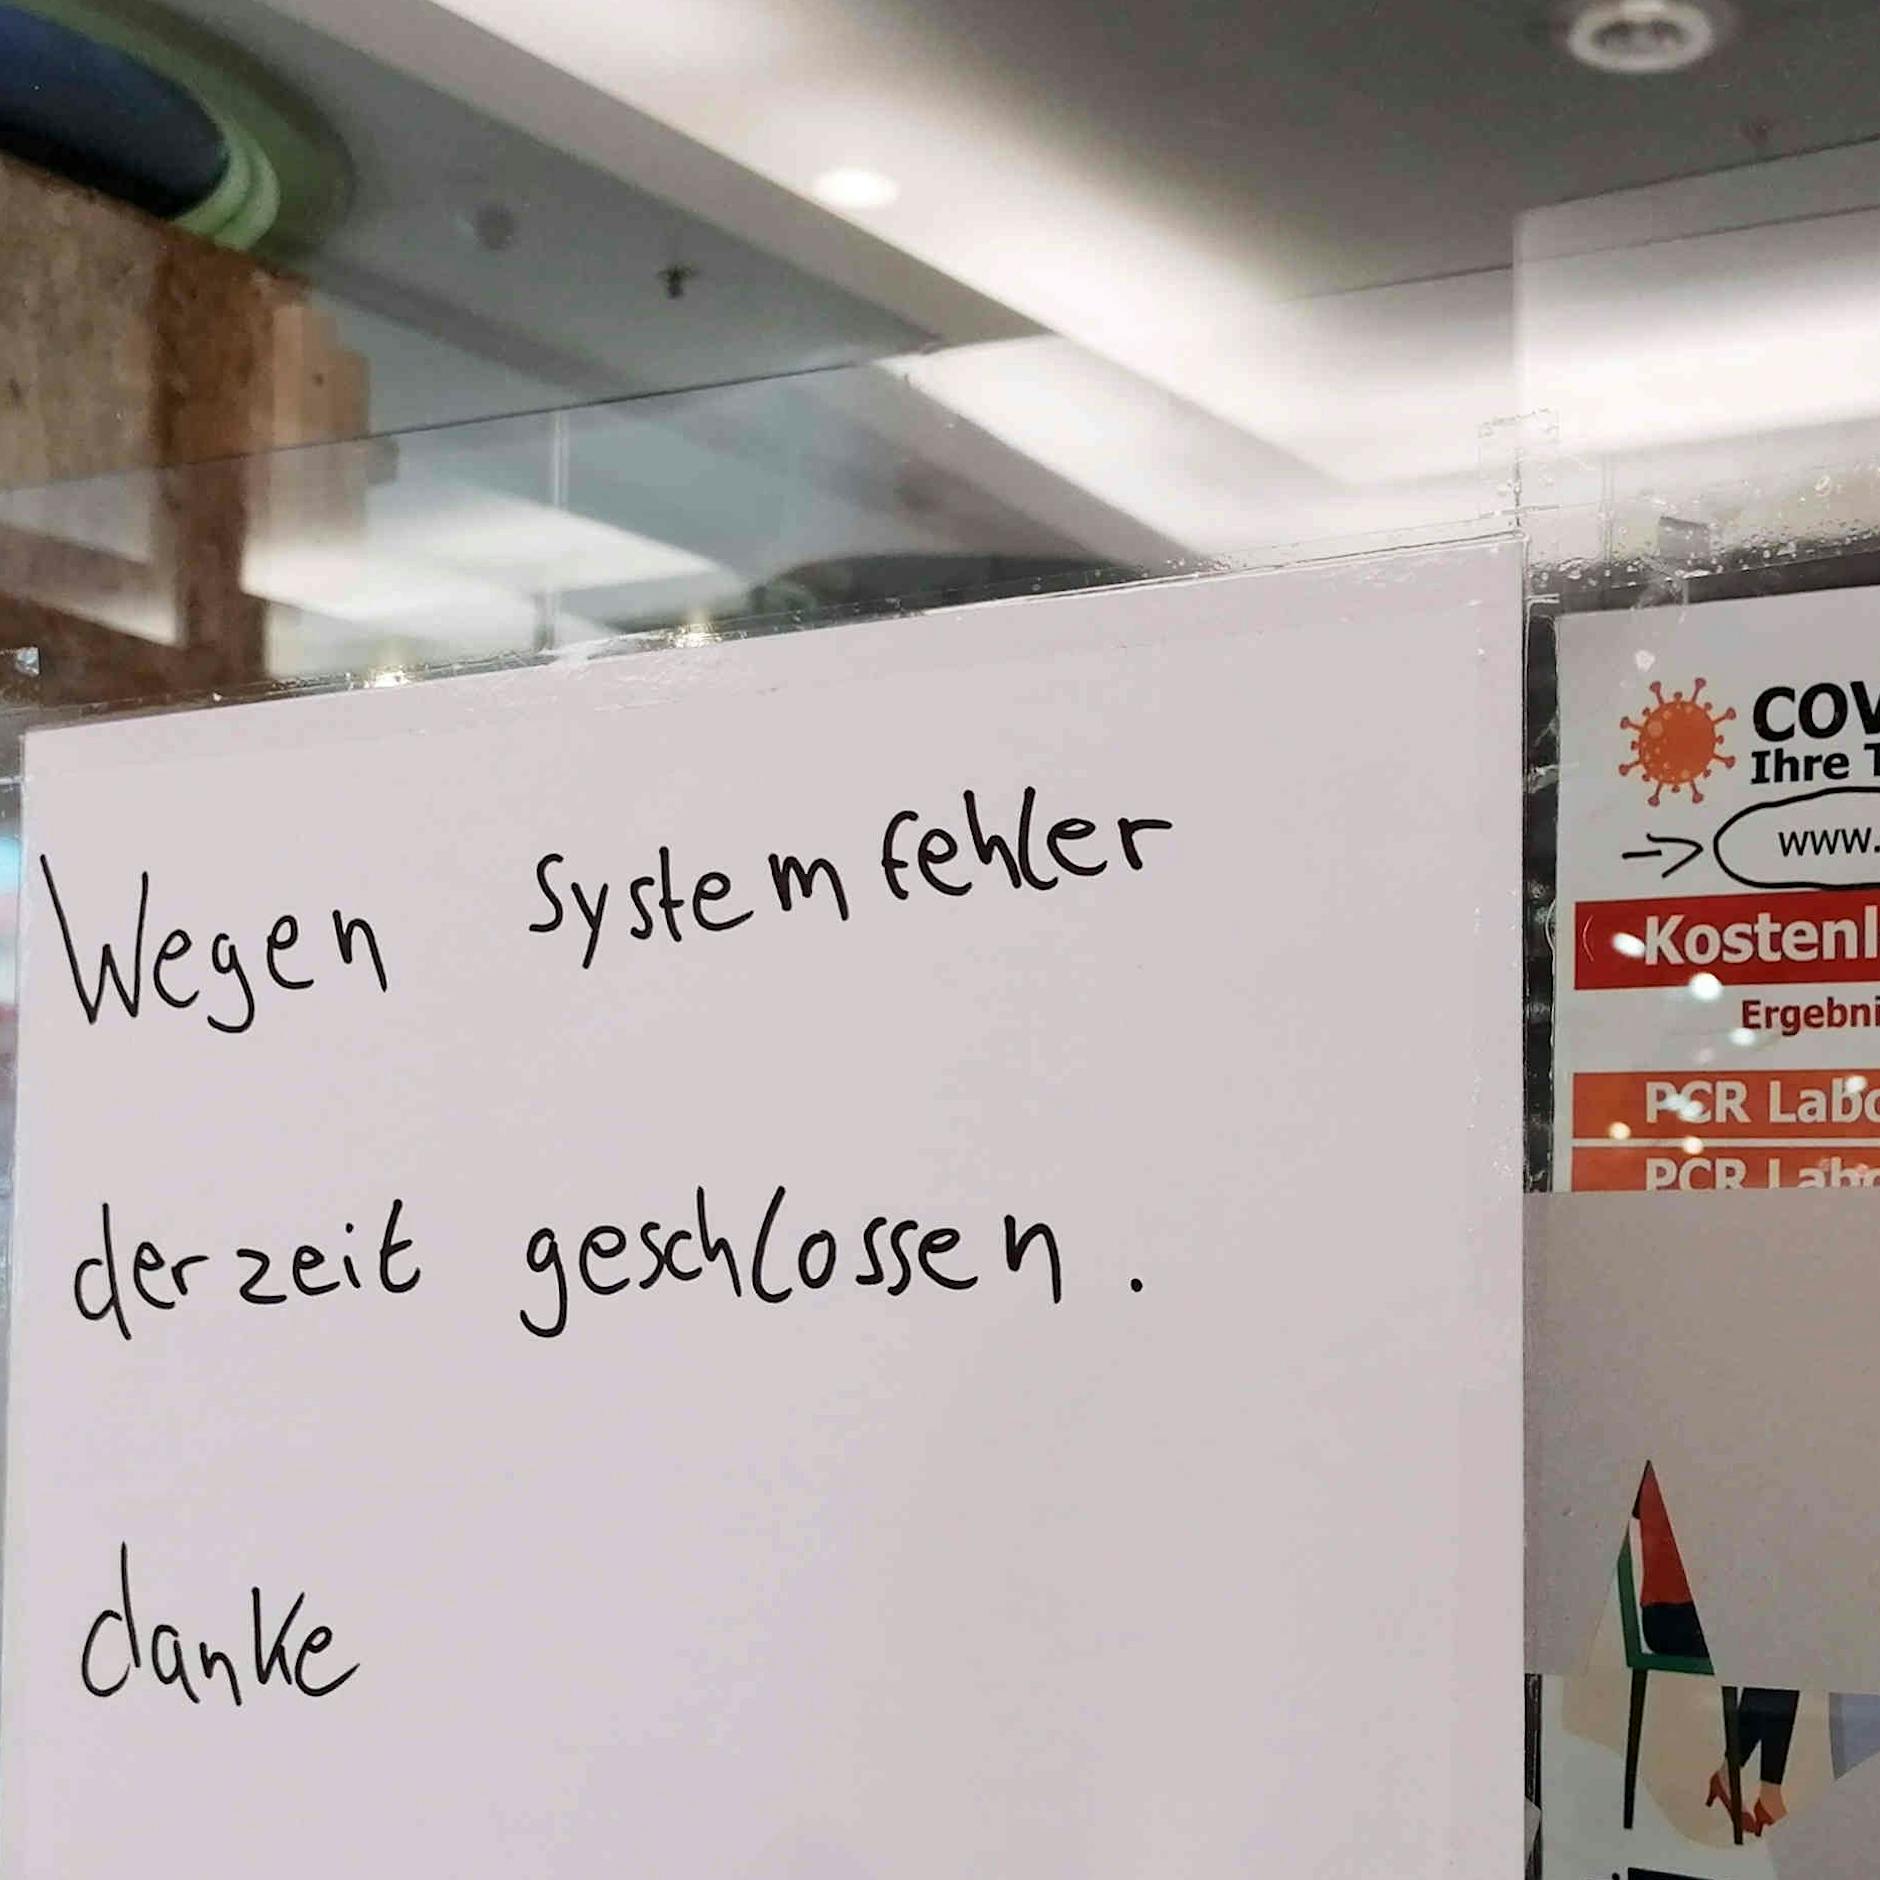 Wegen Systemfehler
derzeit geschlossen.
danke
COV
Ihre T
www.
Kostenl
Ergebni
PCR Labo
PCR Labo